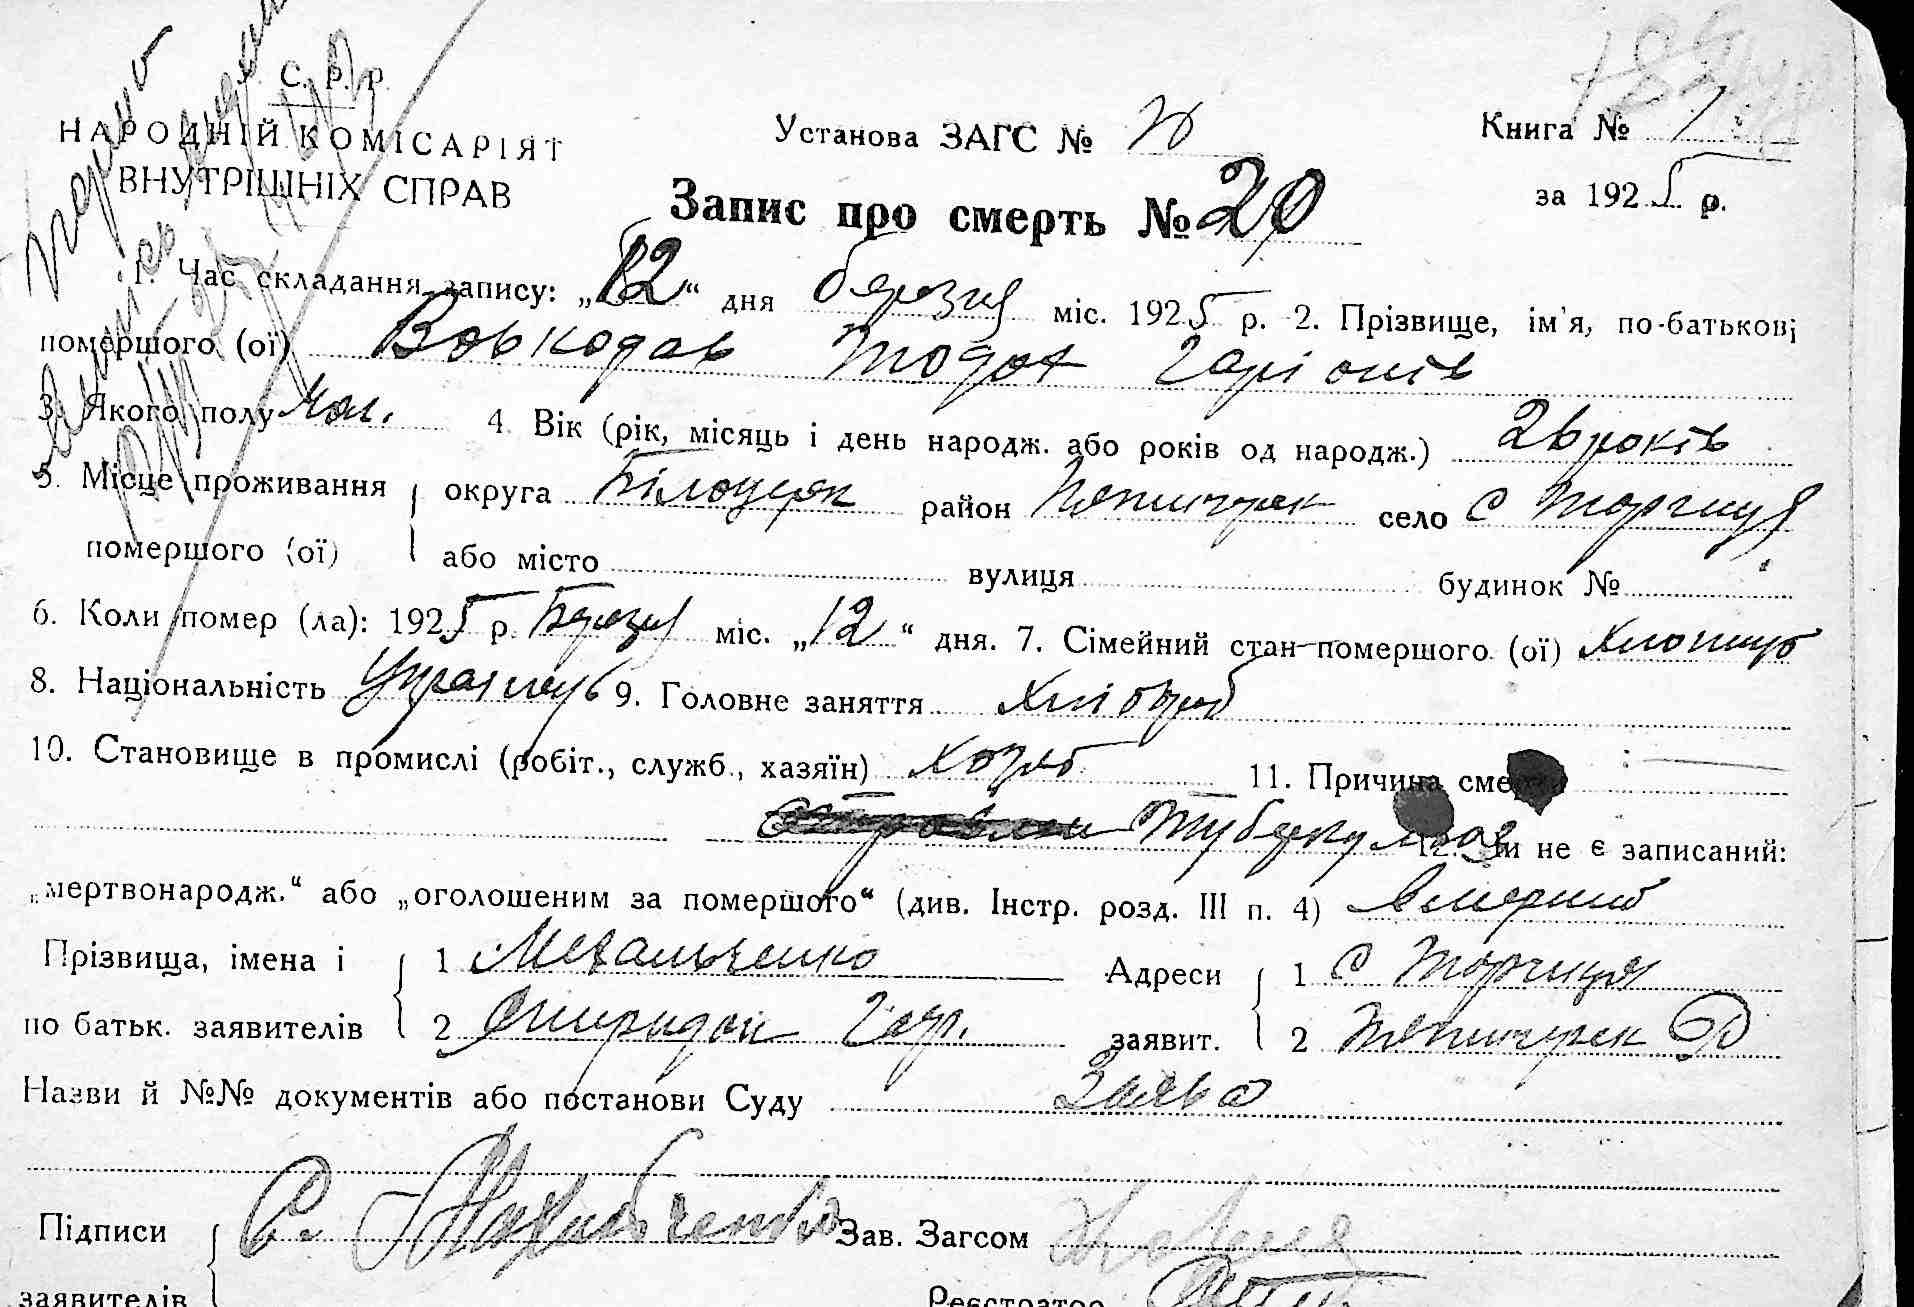 С. Р. Р.
НАРОДНІЙ КОМІСАРІЯТ
ВНУТРІШНІХ СПРАВ
Установа ЗАГС №
Книга № 1
за 1925 р.
Запис про смерть № 20
1. Час складання запису: „12“ дня березня міс. 1925 р. 2. Прізвище, ім'я, по-батькові
помершого (ої) Вовкодав Тодот Гаріонів
3. Якого полу Чол. 4. Вік (рік, місяць і день народж. або років од народж.) 26 років
5. Місце проживання помершого (ої) округа Білоцерк район Пятигорск село с Торчиця
або місто вулиця будинок №
6. Коли помер (ла): 1925 р. Березня міс. „12“ дня. 7. Сімейний стан помершого (ої)
8. Національність Українець 9. Головне заняття Хлібороб
10. Становище в промислі (робіт., служб., хазяїн) 11. Причина смерти
Туберкульоз 12. Чи не є записаний:
„мертвонародж.“ або „оголошеним за помершого“ (див. Інстр. розд. III п. 4) вмерший
Прізвища, імена і 1 Михальченко Адреси 1 с Торчиця
по батьк. заявителів 2 Спиридон Гар. заявит. 2 Пятигорск Р
Назви й №№ документів або постанови Суду Заява
Підписи С. Михальченко Зав. Загсом
заявителів Реєстратор